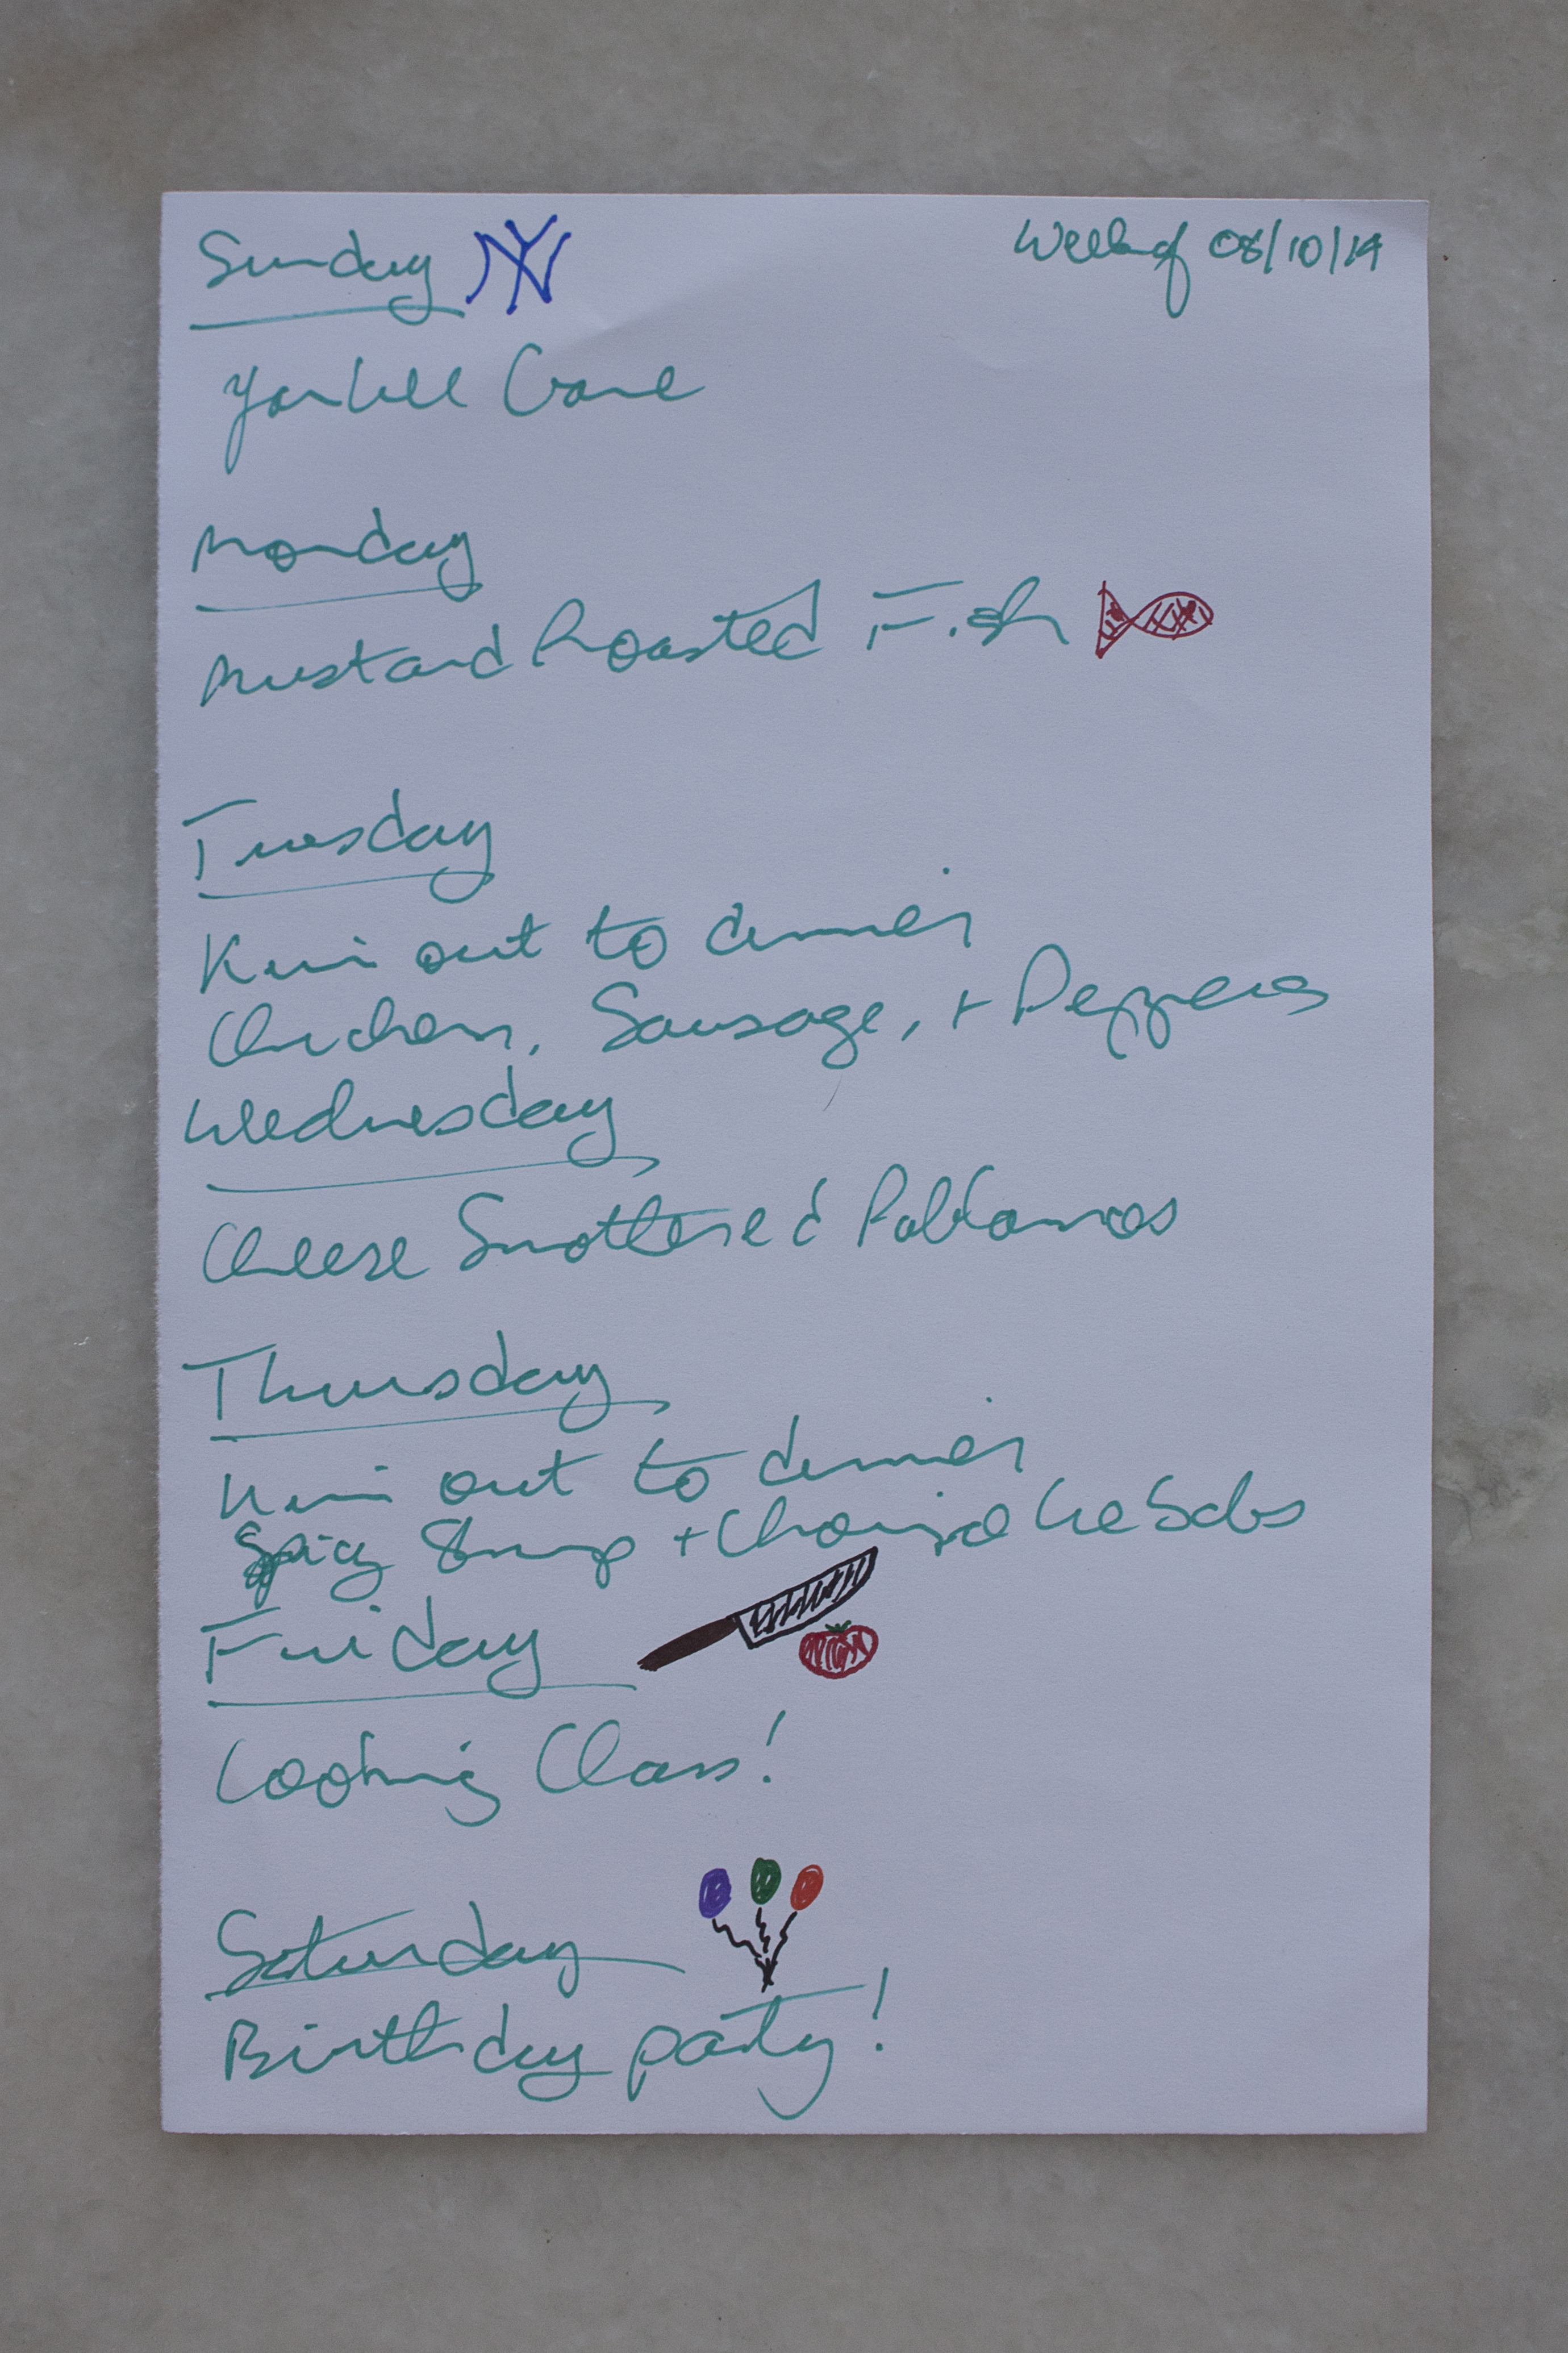 Sunday NY
Week of 08/10/14
Yankee Game
Monday
Mustard Roasted Fish
Tuesday
Kim out to dinner
Chicken, Sausage, + Peppers
Wednesday
Cheese Smothered Poblanos
Thursday
Kim out to dinner
Spicy Shrimp + Chorizo Kebabs
Friday
Cooking Class!
Saturday
Birthday party!